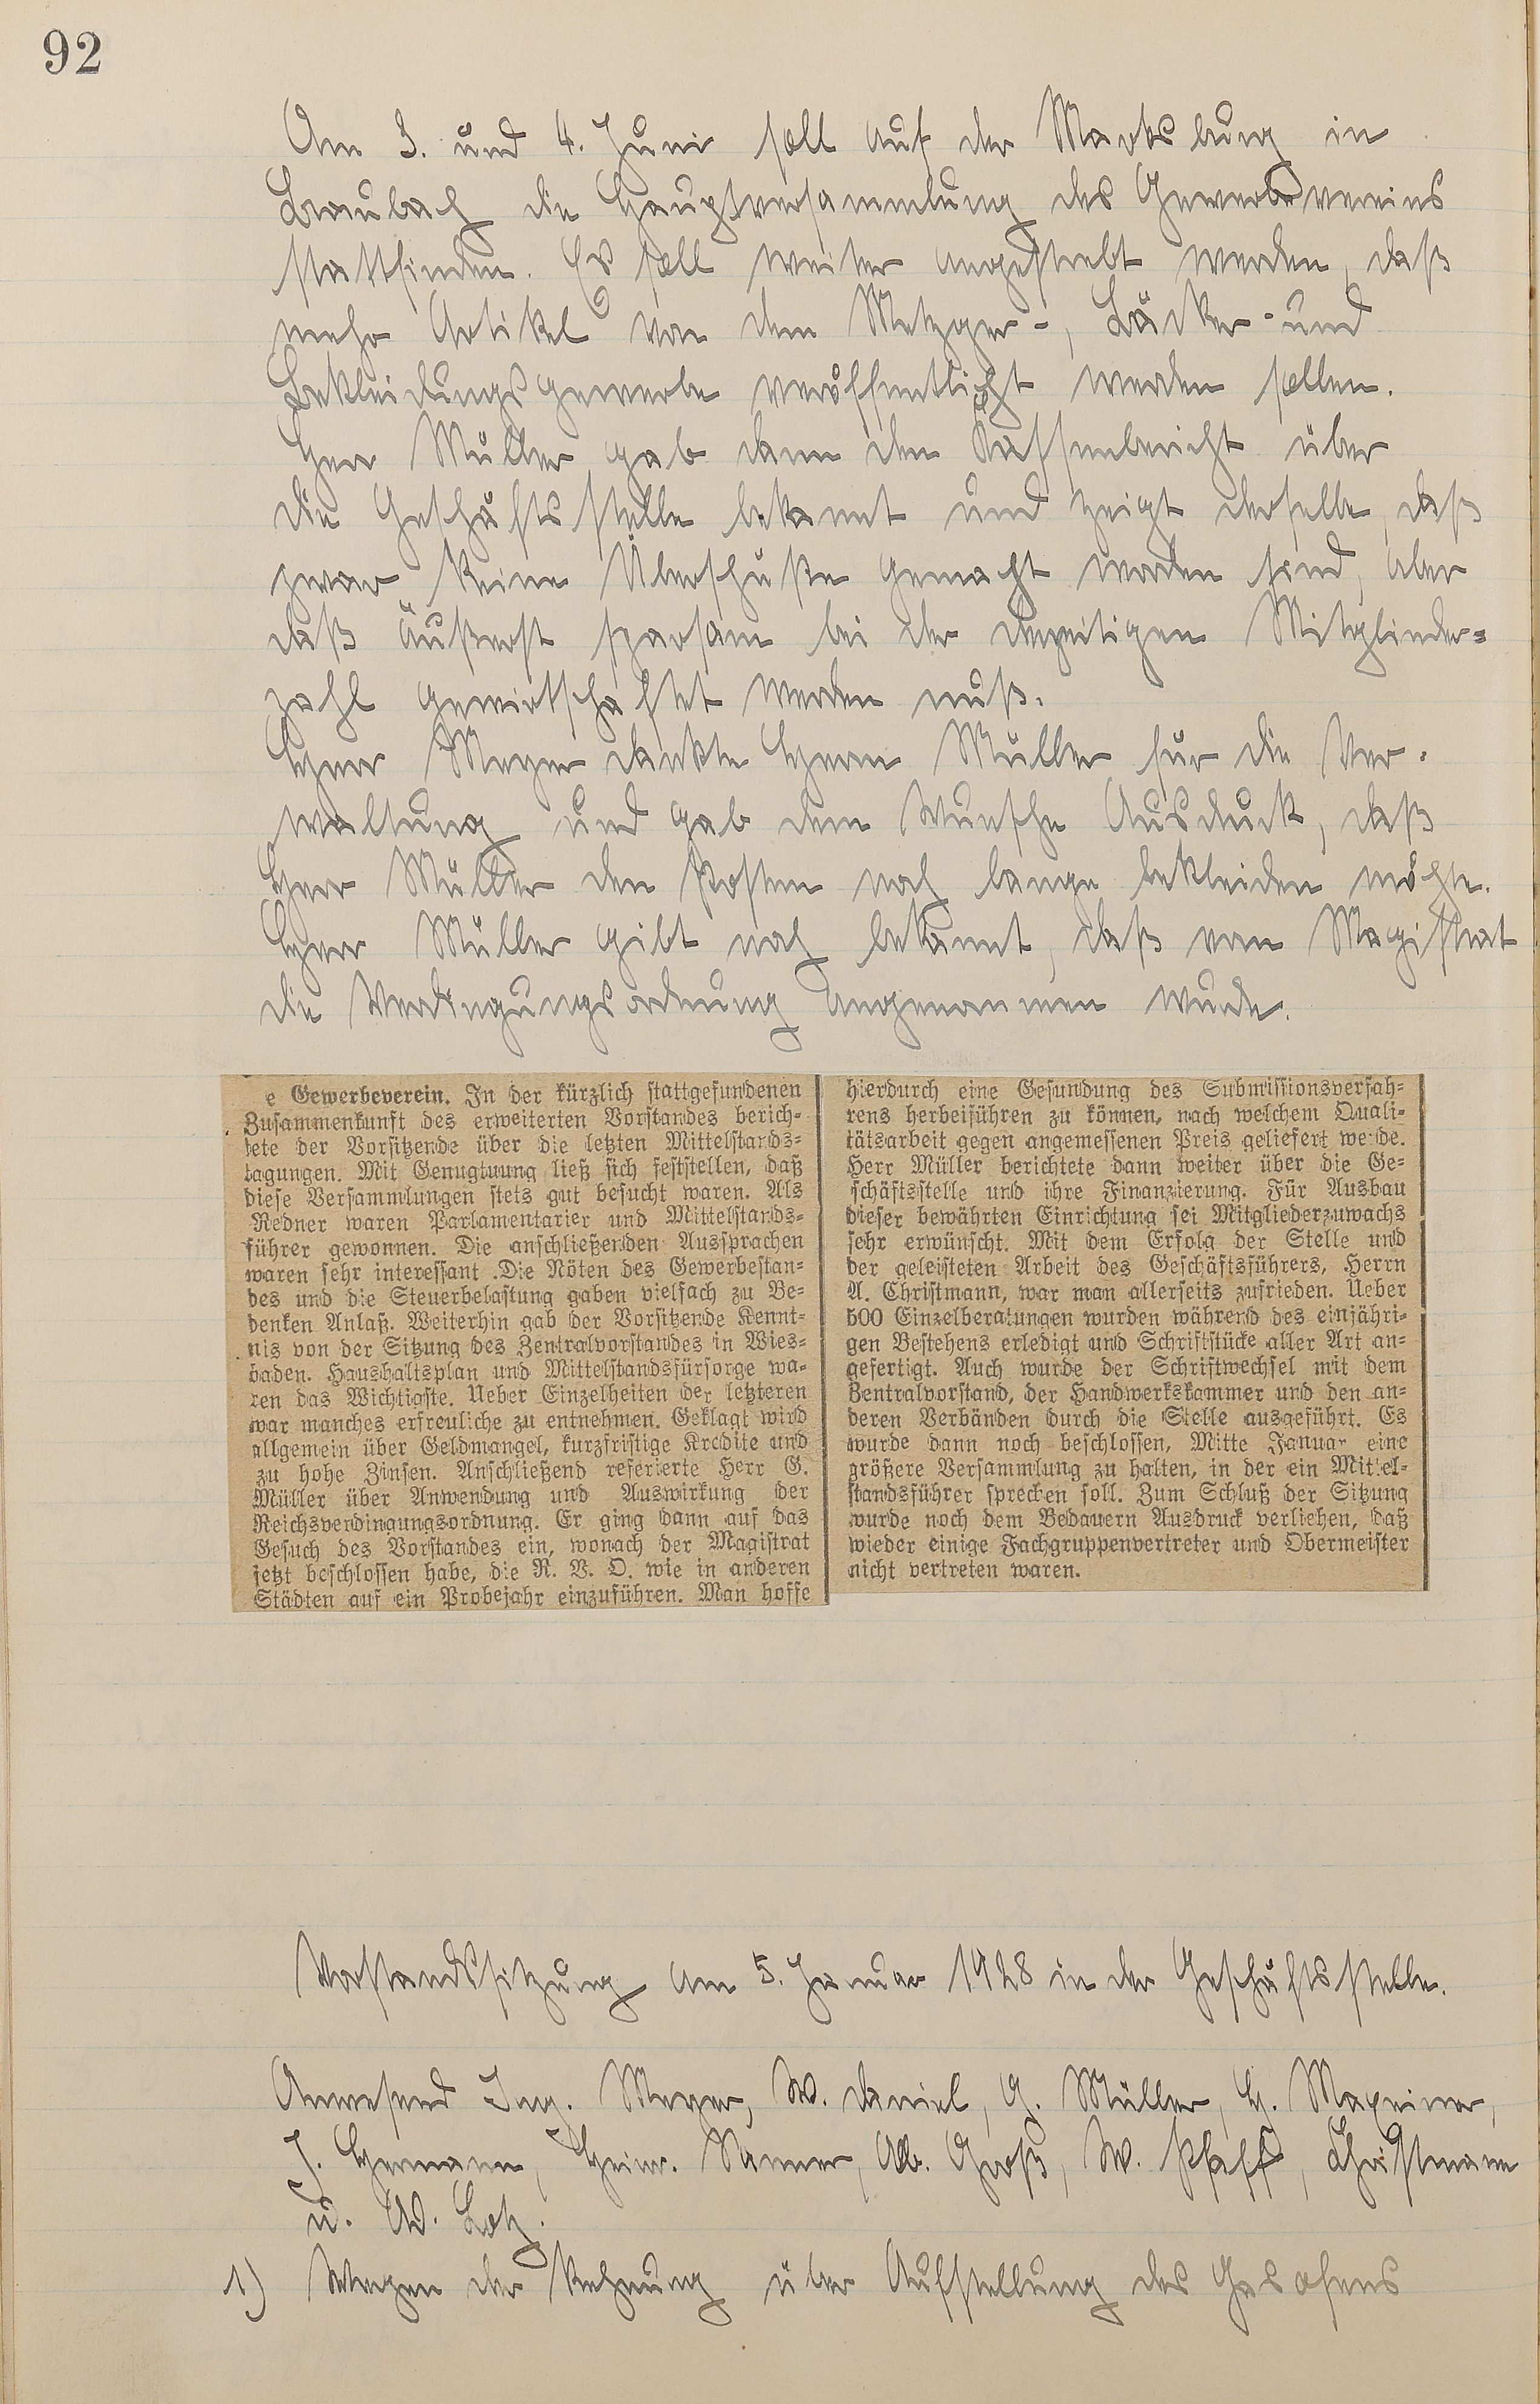 92
Am 3. und 4. Juni soll auf der Marksburg in
Braubach die Hauptversammlung des Gewerbevereins
stattfinden. Es soll weiter angestrebt werden, daß
mehr Artikel von dem Metzger-, Bäcker- und
Bekleidungsgewerbe veröffentlicht werden sollen.
Herr Müller gab dann den Kassenbericht über
die Geschäftsstelle bekannt und zeigt derselbe, daß
zwar keine Überschüße gemacht worden sind, aber
daß äußerst sparsam bei der derzeitigen Mitglieder=
zahl gewirtschaftet werden muß.
Herr Meyer dankte Herrn Müller für die Ver-
waltung und gab dem Wunsche Ausdruck, daß
Herr Müller den Posten noch lange bekleiden möchte.
Herr Müller gibt noch bekannt, daß vom Magistrat
die Verdingungsordnung angenommen wurde.
e Gewerbeverein. In der kürzlich stattgefundenen
Zusammenkunft des erweiterten Vorstandes berich-
tete der Vorsitzende über die letzten Mittelstands-
tagungen. Mit Genugtuung ließ sich feststellen, daß
diese Versammlungen stets gut besucht waren. Als
Redner waren Parlamentarier und Mittelstands-
führer gewonnen. Die anschließenden Aussprachen
waren sehr interessant .Die Nöten des Gewerbestan-
des und die Steuerbelastung gaben vielfach zu Be-
denken Anlaß. Weiterhin gab der Vorsitzende Kennt-
nis von der Sitzung des Zentralvorstandes in Wies-
baden. Haushaltsplan und Mittelstandsfürsorge wa-
ren das Wichtigste. Ueber Einzelheiten der letzteren
war manches erfreuliche zu entnehmen. Geklagt wird
allgemein über Geldmangel, kurzfristige Kredite und
zu hohe Zinsen. Anschließend referierte Herr G.
Müller über Anwendung und Auswirkung der
Reichsverdingungsordnung. Er ging dann auf das
Gesuch des Vorstandes ein, wonach der Magistrat
jetzt beschlossen habe, die R. V. O. wie in anderen
Städten auf ein Probejahr einzuführen. Man hoffe
hierdurch eine Gesundung des Submissionsverfah-
rens herbeiführen zu können, nach welchem Quali-
tätsarbeit gegen angemessenen Preis geliefert werde.
Herr Müller berichtete dann weiter über die Ge-
schäftsstelle und ihre Finanzierung. Für Ausbau
dieser bewährten Einrichtung sei Mitgliederzuwachs
sehr erwünscht. Mit dem Erfolg der Stelle und
der geleisteten Arbeit des Geschäftsführers, Herrn
A. Christmann, war man allerseits zufrieden. Ueber
500 Einzelberatungen wurden während des einjähri-
gen Bestehens erledigt und Schriftstücke aller Art an-
gefertigt. Auch wurde der Schriftwechsel mit dem
Zentralvorstand, der Handwerkskammer und den an-
deren Verbänden durch die Stelle ausgeführt. Es
wurde dann noch beschlossen, Mitte Januar eine
größere Versammlung zu halten, in der ein Mittel-
standsführer sprechen soll. Zum Schluß der Sitzung
wurde noch dem Bedauern Ausdruck verliehen, daß
wieder einige Fachgruppenvertreter und Obermeister
nicht vertreten waren.
Vorstandssitzung am 5. Januar 1928 in der Geschäftsstelle.
Anwesend Ing. Meyer, W. Daniel, G. Müller, H. Maxeiner,
J. Hermann, Heinr. Sanner, Alb. Groß, W. Pfaff, Christmann
u. W. Lotz.
1) Wegen der Rechnung über Aufstellung des Gasofens